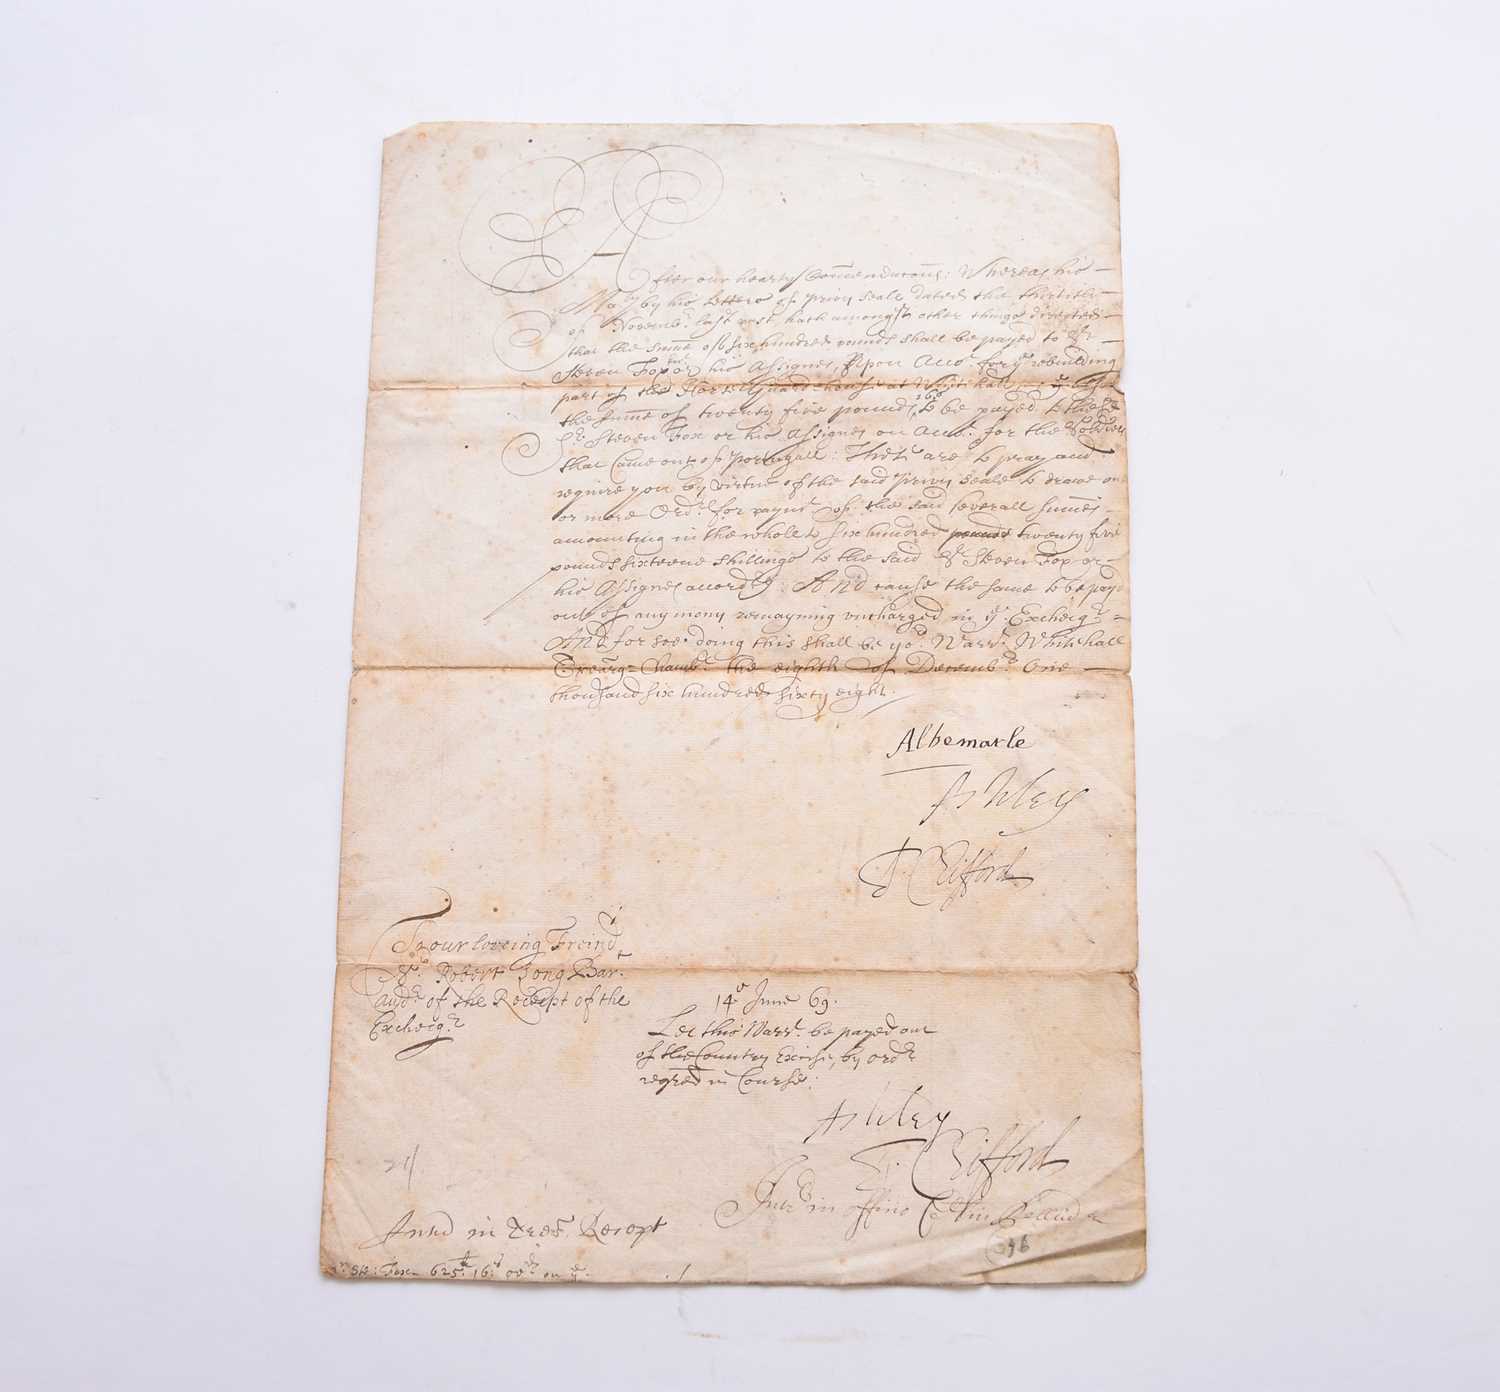 After our hearty Com̄endac̄ons: Whereas his
Maty by his Letters of privy seale dated the thirtieth
of Novembr last past, hath amongst other things directed
that the sum̄e of six hundred pounds shall be payed to Sr
Steven Fox or his Assignes, Upon Accot for ye rebuilding
part of the Horse Guard house at Whitehall
the sum̄e of twenty five pounds, 16s to be payed to the sd
Sr Steven Fox or his Assignes on Accot for the Soldiers
that Came out of Portugall: These are to pray and
require you by virtue of the said privy Seale to drawe one
or more Ordrs for paymt of the said severall sum̄es
amounting in the whole to six hundred pounds twenty five
pounds sixteene shillings to the said Sr Steven Fox or
his Assignes accordly And cause the same to be payd
out of any mony remayning uncharged in ye Exchecqr
And for soe doing this shall be yor Warrt Whitehall
Treāry Chambr the eighth of Decembr One
thousand six hundred sixty eight.
Albemarle
Ashley
T. Clifford
To our loveing Freind
Sr Robert Long Bart
Audr of the Receipt of the
Exchecqr
14o June 69.
Let this Warrt be payed out
of the Country Excise, by ordr
regred in Course:
Ashley
T. Clifford
in officio
in Receipt
396
Sr Ste: Fox 625li 16s 00d on ye